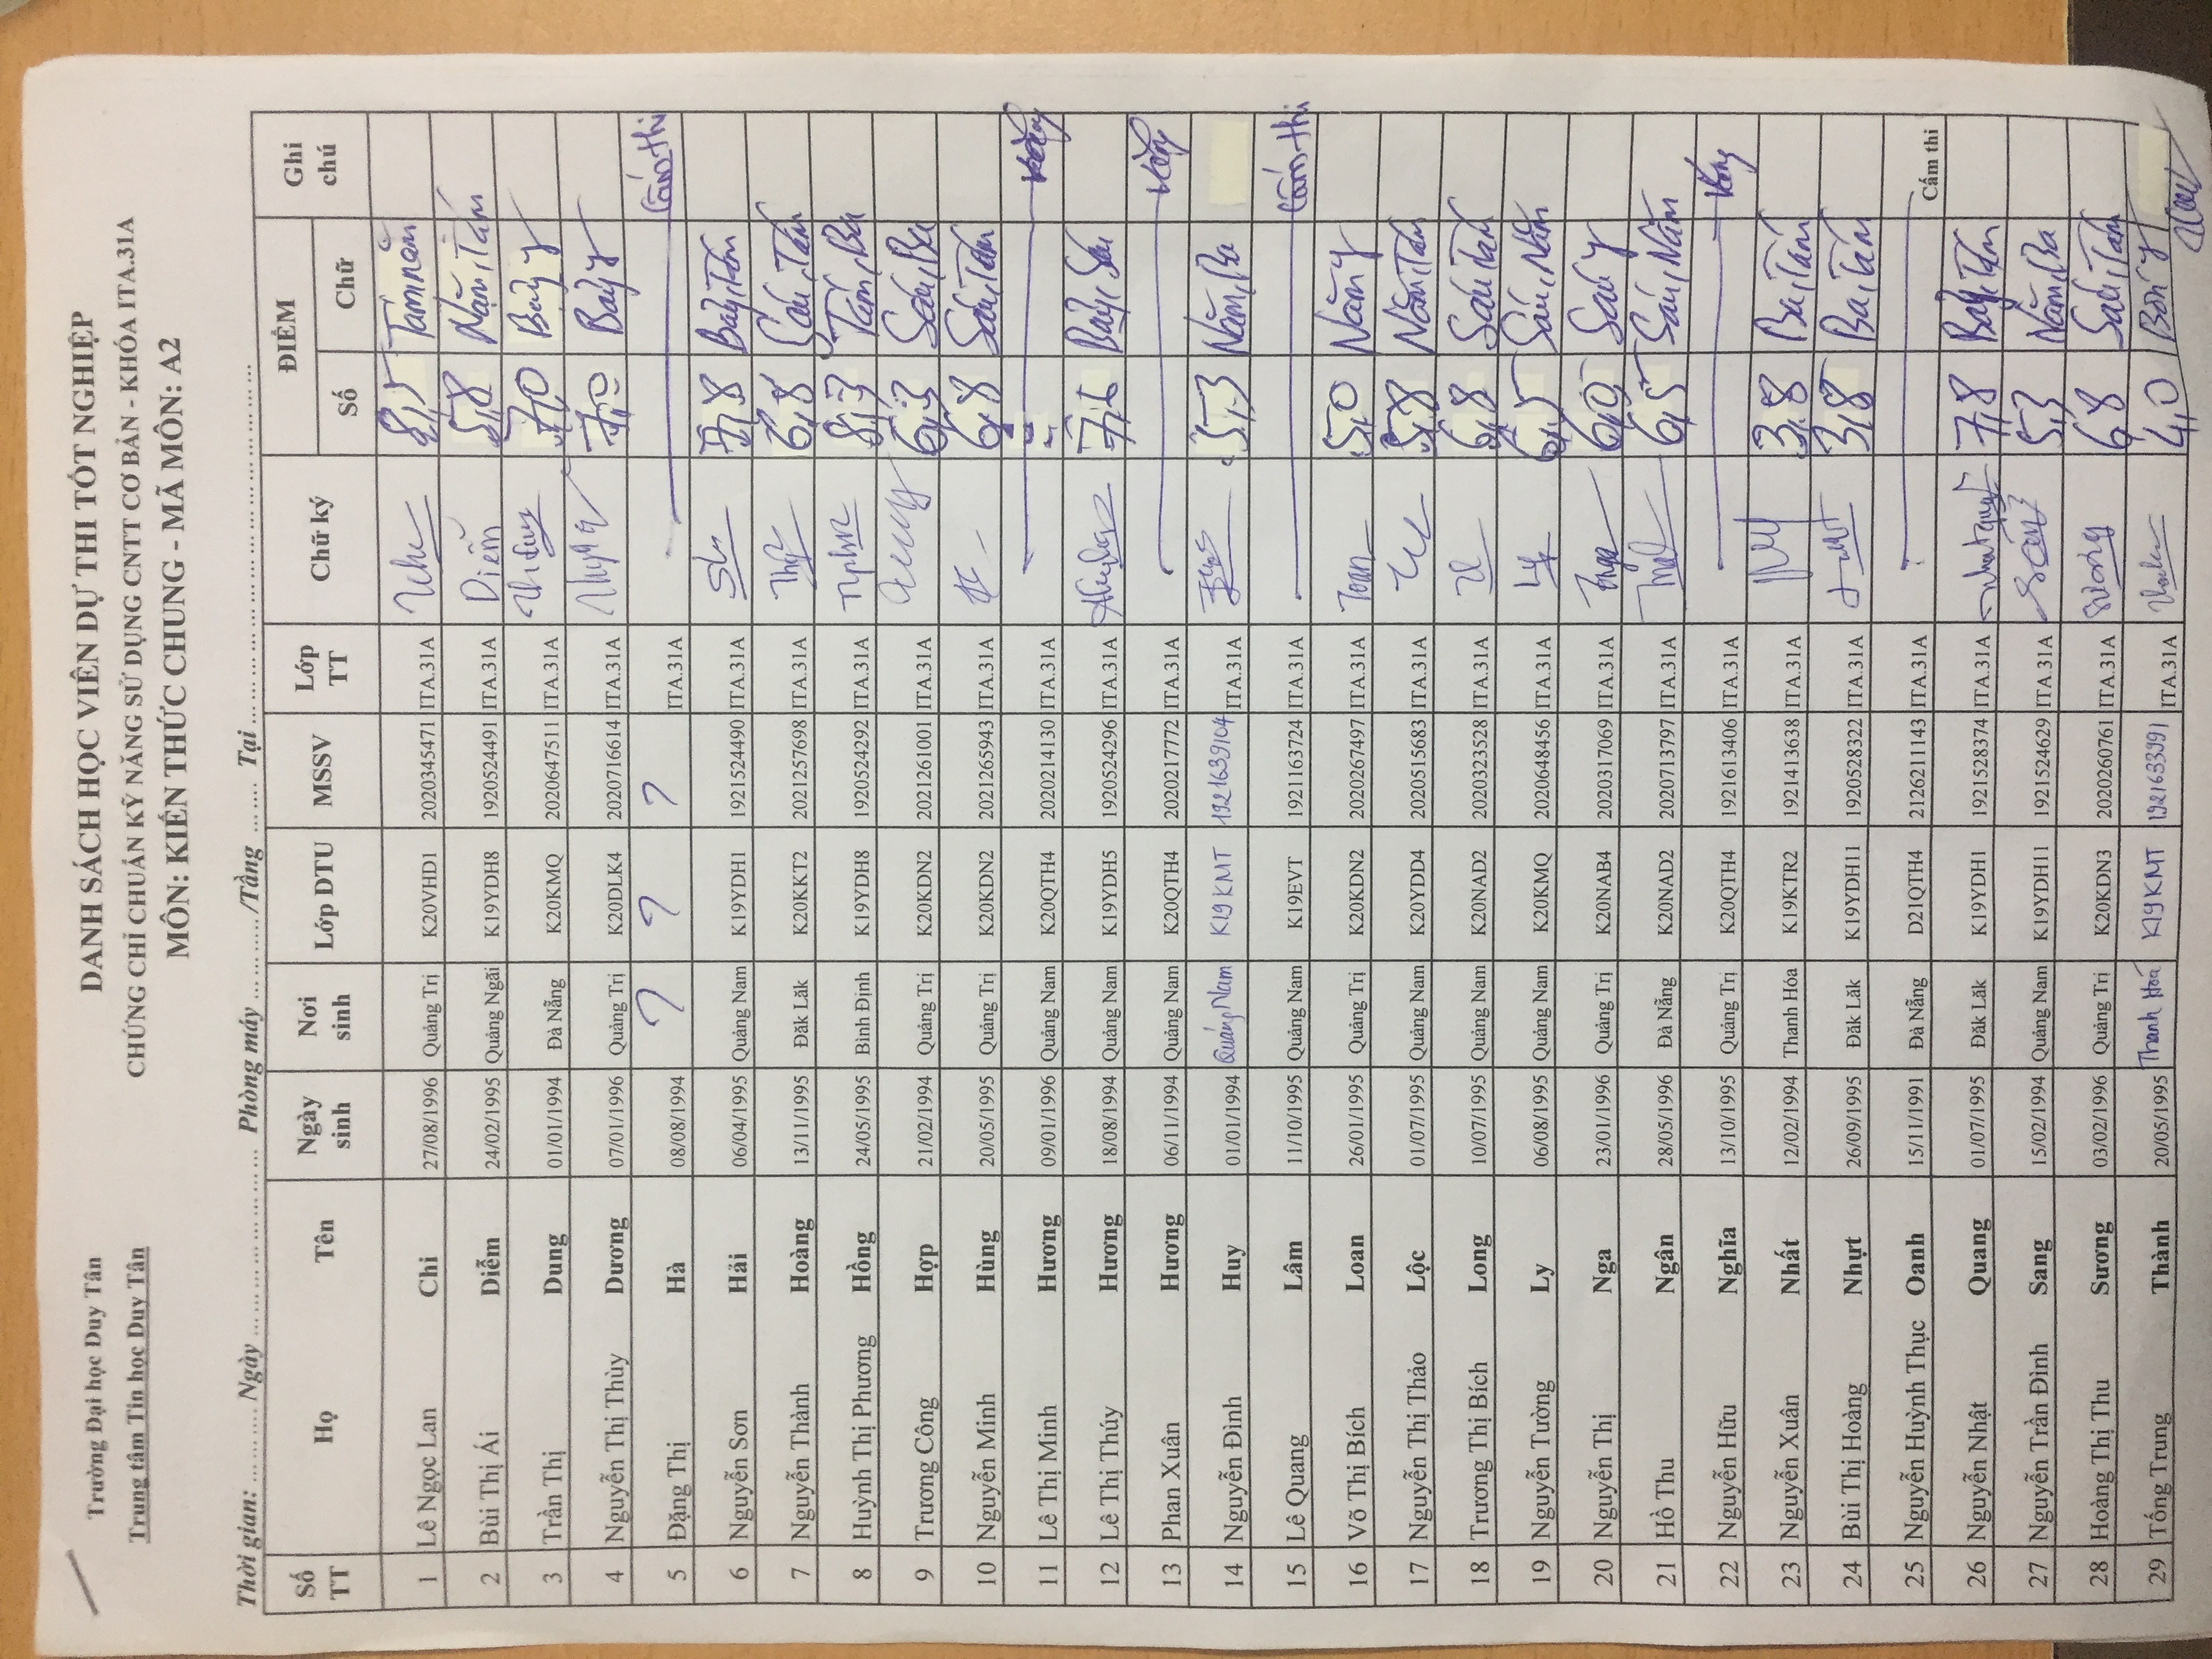 Trường Đại học Duy Tân
Trung tâm Tin học Duy Tân
DANH SÁCH HỌC VIÊN DỰ THI TỐT NGHIỆP
CHỨNG CHỈ CHUẨN KỸ NĂNG SỬ DỤNG CNTT CƠ BẢN - KHÓA ITA.31A
MÔN: KIẾN THỨC CHUNG - MÃ MÔN: A2
Thời gian: ……… Ngày ……………… Phòng máy ………… /Tầng ……… Tại ………………………………
Số TT Họ Tên Ngày sinh Nơi sinh Lớp DTU MSSV Lớp TT Chữ ký ĐIỂM Số Chữ Ghi chú
1 Lê Ngọc Lan Chi 27/08/1996 Quảng Trị K20VHD1 2020345471 ITA.31A 8,5 Tám, năm
2 Bùi Thị Ái Diễm 24/02/1995 Quảng Ngãi K19YDH8 1920524491 ITA.31A Diễm 5,8 Năm, Tám
3 Trần Thị Dung 01/01/1994 Đà Nẵng K20KMQ 2020647511 ITA.31A 7,0 Bảy
4 Nguyễn Thị Thùy Dương 07/01/1996 Quảng Trị K20DLK4 2020716614 ITA.31A 7,0 Bảy
5 Đặng Thị Hà 08/08/1994 ? ? ? ITA.31A Cấm thi
6 Nguyễn Sơn Hải 06/04/1995 Quảng Nam K19YDH1 1921524490 ITA.31A 7,8 Bảy, Tám
7 Nguyễn Thành Hoàng 13/11/1995 Đăk Lăk K20KKT2 2021257698 ITA.31A 6,8 Sáu, Tám
8 Huỳnh Thị Phương Hồng 24/05/1995 Bình Định K19YDH8 1920524292 ITA.31A 8,3 Tám, Ba
9 Trương Công Hợp 21/02/1994 Quảng Trị K20KDN2 2021261001 ITA.31A 6,3 Sáu, Ba
10 Nguyễn Minh Hùng 20/05/1995 Quảng Trị K20KDN2 2021265943 ITA.31A 6,8 Sáu, Tám
11 Lê Thị Minh Hương 09/01/1996 Quảng Nam K20QTH4 2020214130 ITA.31A Vắng
12 Lê Thị Thúy Hương 18/08/1994 Quảng Nam K19YDH5 1920524296 ITA.31A 7,6 Bảy, Sáu
13 Phan Xuân Hương 06/11/1994 Quảng Nam K20QTH4 2020217772 ITA.31A Vắng
14 Nguyễn Đình Huy 01/01/1994 Quảng Nam K19KMT 1921639104 ITA.31A 5,3 Năm, Ba
15 Lê Quang Lâm 11/10/1995 Quảng Nam K19EVT 1921163724 ITA.31A Cấm thi
16 Võ Thị Bích Loan 26/01/1995 Quảng Trị K20KDN2 2020267497 ITA.31A Loan 5,0 Năm
17 Nguyễn Thị Thảo Lộc 01/07/1995 Quảng Nam K20YDD4 2020515683 ITA.31A 5,8 Năm, Tám
18 Trương Thị Bích Long 10/07/1995 Quảng Nam K20NAD2 2020323528 ITA.31A 6,8 Sáu, Tám
19 Nguyễn Tường Ly 06/08/1995 Quảng Nam K20KMQ 2020648456 ITA.31A Ly 6,5 Sáu, Năm
20 Nguyễn Thị Nga 23/01/1996 Quảng Trị K20NAB4 2020317069 ITA.31A Nga 6,0 Sáu
21 Hồ Thu Ngân 28/05/1996 Đà Nẵng K20NAD2 2020713797 ITA.31A 6,5 Sáu, Năm
22 Nguyễn Hữu Nghĩa 13/10/1995 Quảng Trị K20QTH4 1921613406 ITA.31A Vắng
23 Nguyễn Xuân Nhất 12/02/1994 Thanh Hóa K19KTR2 1921413638 ITA.31A 3,8 Ba, Tám
24 Bùi Thị Hoàng Nhựt 26/09/1995 Đăk Lăk K19YDH11 1920528322 ITA.31A 3,8 Ba, Tám
25 Nguyễn Huỳnh Thục Oanh 15/11/1991 Đà Nẵng D21QTH4 2126211143 ITA.31A Cấm thi
26 Nguyễn Nhật Quang 01/07/1995 Đăk Lăk K19YDH1 1921528374 ITA.31A 7,8 Bảy, Tám
27 Nguyễn Trần Đình Sang 15/02/1994 Quảng Nam K19YDH11 1921524629 ITA.31A Sang 5,3 Năm, Ba
28 Hoàng Thị Thu Sương 03/02/1996 Quảng Trị K20KDN3 2020260761 ITA.31A Sương 6,8 Sáu, Tám
29 Tống Trung Thành 20/05/1995 Thanh Hoá K19KMT 1921633991 ITA.31A 4,0 Bốn